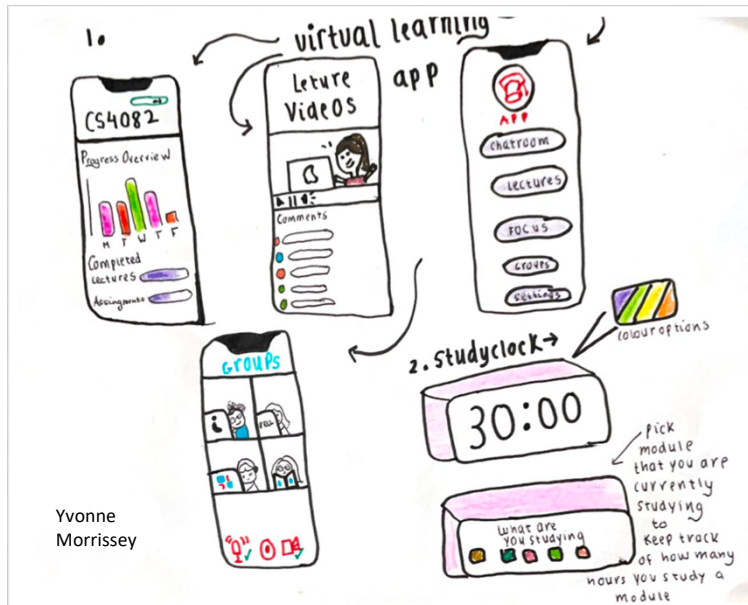 1.
virtual learning
app
CS4082
Progress Overview
M T W T F
Completed
Lectures
Assingments
Leture
Videos
Comments
APP
chatroom
Lectures
FOCUS
Groups
Settings
GROUPS
DELL
2. Studyclock
colour options
30:00
pick
module
that you are
currently
studying
to
keep track
of how many
hours you study a
module
What are
you studying
Yvonne
Morrissey